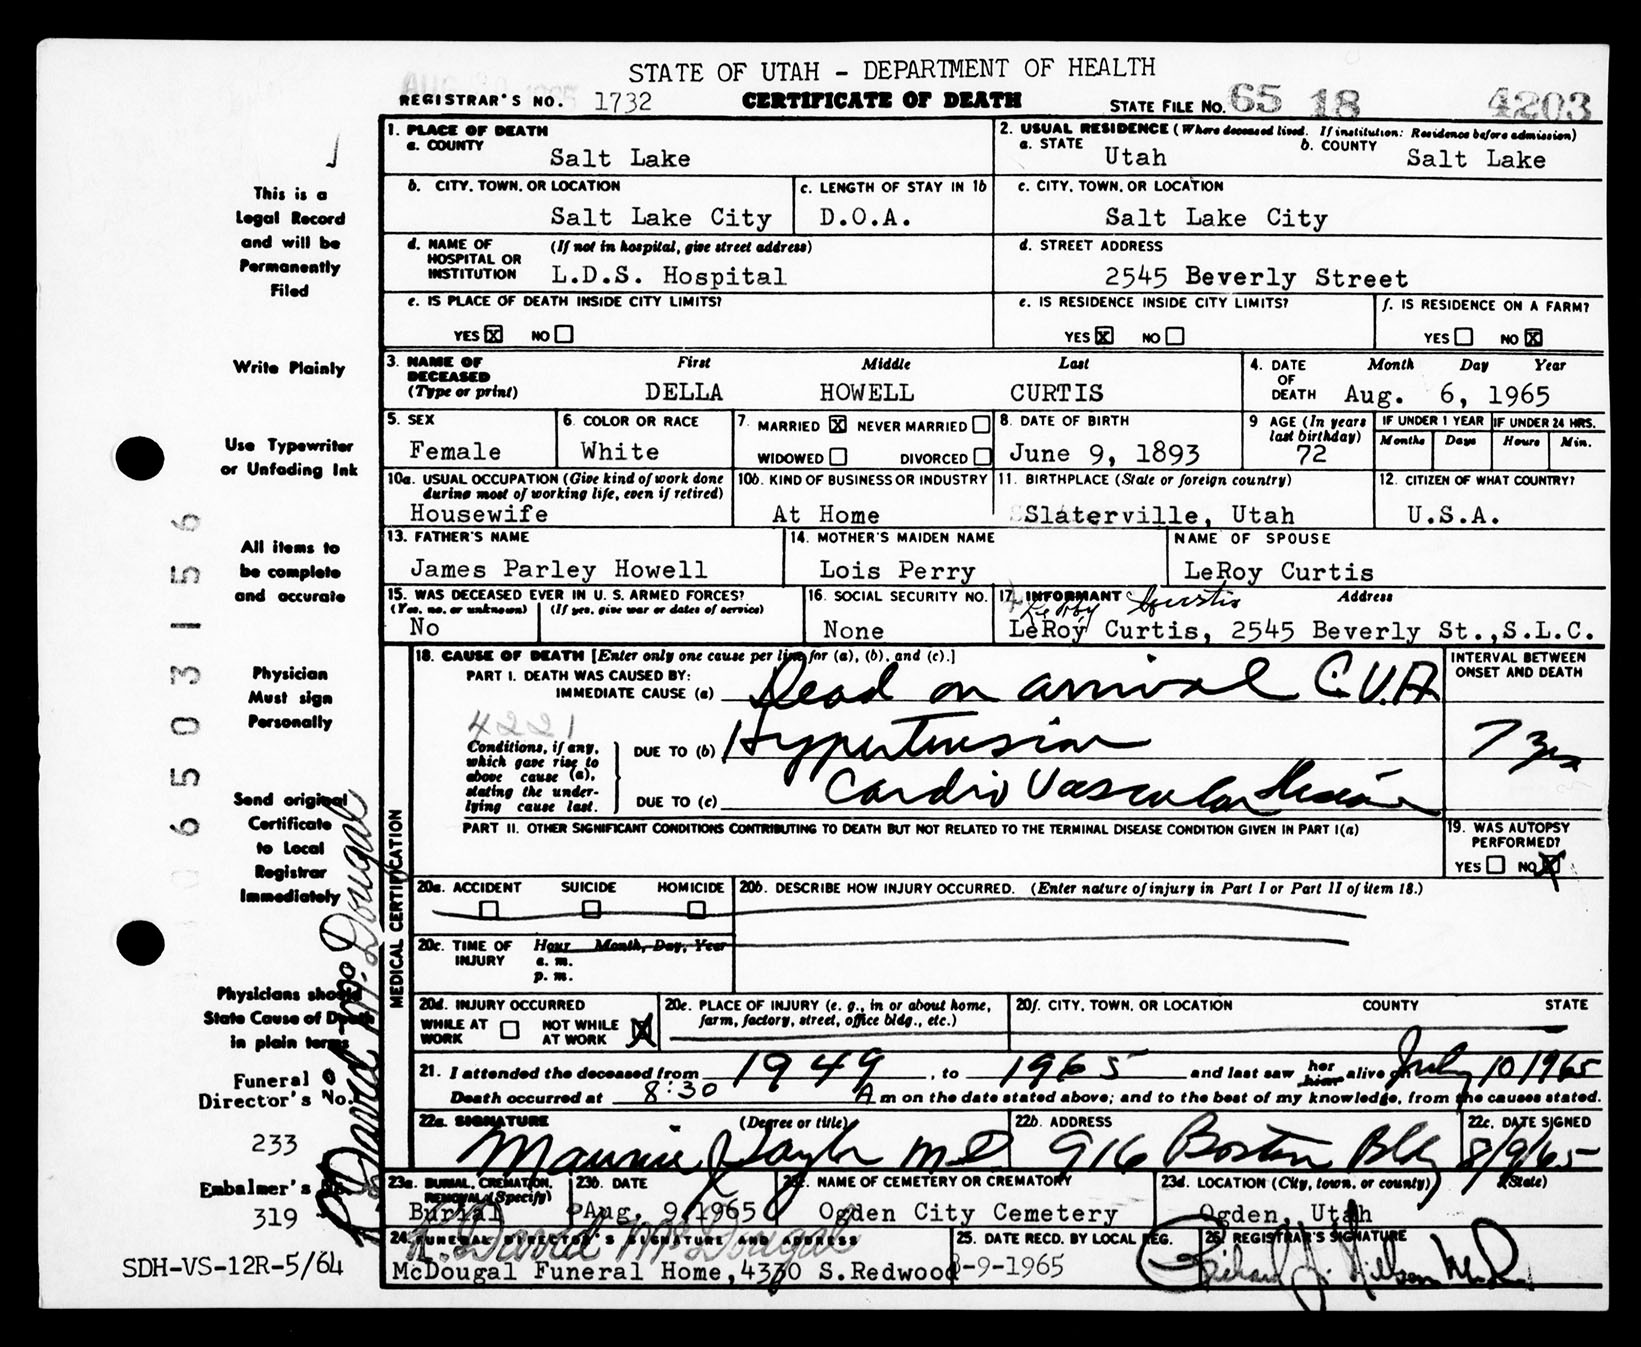 STATE OF UTAH - DEPARTMENT OF HEALTH
REGISTRAR'S NO. 1732 CERTIFICATE OF DEATH STATE FILE NO. 65 18 4203
1. PLACE OF DEATH
a. COUNTY Salt Lake
2. USUAL RESIDENCE (Where deceased lived. If institution: Residence before admission)
a. STATE Utah b. COUNTY Salt Lake
b. CITY, TOWN, OR LOCATION Salt Lake City
c. LENGTH OF STAY IN 1b D.O.A.
c. CITY, TOWN, OR LOCATION Salt Lake City
d. NAME OF HOSPITAL OR INSTITUTION (If not in hospital, give street address)
L.D.S. Hospital
d. STREET ADDRESS
2545 Beverly Street
e. IS PLACE OF DEATH INSIDE CITY LIMITS?
YES X NO
e. IS RESIDENCE INSIDE CITY LIMITS?
YES X NO
f. IS RESIDENCE ON A FARM?
YES NO X
3. NAME OF DECEASED (Type or print) First Middle Last
DELLA HOWELL CURTIS
4. DATE OF DEATH Month Day Year
Aug. 6, 1965
5. SEX
Female
6. COLOR OR RACE
White
7. MARRIED X NEVER MARRIED
WIDOWED DIVORCED
8. DATE OF BIRTH
June 9, 1893
9 AGE (In years last birthday)
72
IF UNDER 1 YEAR
Months Days
IF UNDER 24 HRS.
Hours Min.
10a. USUAL OCCUPATION (Give kind of work done during most of working life, even if retired)
Housewife
10b. KIND OF BUSINESS OR INDUSTRY
At Home
11. BIRTHPLACE (State or foreign country)
Slaterville, Utah
12. CITIZEN OF WHAT COUNTRY?
U.S.A.
13. FATHER'S NAME
James Parley Howell
14. MOTHER'S MAIDEN NAME
Lois Perry
NAME OF SPOUSE
LeRoy Curtis
15. WAS DECEASED EVER IN U. S. ARMED FORCES?
(Yes, no, or unknown) (If yes, give war or dates of service)
No
16. SOCIAL SECURITY NO.
None
17. INFORMANT Address
LeRoy Curtis
LeRoy Curtis, 2545 Beverly St.,S.L.C.
MEDICAL CERTIFICATION
18. CAUSE OF DEATH [Enter only one cause per line for (a), (b), and (c).]
INTERVAL BETWEEN ONSET AND DEATH
PART I. DEATH WAS CAUSED BY:
IMMEDIATE CAUSE (a) Dead on arrival C.V.A
4221
Conditions, if any, which gave rise to above cause (a), stating the underlying cause last.
DUE TO (b) Hypertension
7 yrs
DUE TO (c) Cardio Vascular
PART II. OTHER SIGNIFICANT CONDITIONS CONTRIBUTING TO DEATH BUT NOT RELATED TO THE TERMINAL DISEASE CONDITION GIVEN IN PART I(a)
19. WAS AUTOPSY PERFORMED?
YES NO X
20a. ACCIDENT SUICIDE HOMICIDE
20b. DESCRIBE HOW INJURY OCCURRED. (Enter nature of injury in Part I or Part II of item 18.)
20c. TIME OF INJURY Hour Month, Day, Year
a. m.
p. m.
20d. INJURY OCCURRED
WHILE AT WORK NOT WHILE AT WORK X
20e. PLACE OF INJURY (e. g., in or about home, farm, factory, street, office bldg., etc.)
20f. CITY, TOWN, OR LOCATION COUNTY STATE
21. I attended the deceased from 1949, to 1965 and last saw her him alive on July 10 1965
Death occurred at 8:30 A m on the date stated above; and to the best of my knowledge, from the causes stated.
22a. SIGNATURE (Degree or title)
Maurice J Taylor MD
22b. ADDRESS
916 Boston Bldg
22c. DATE SIGNED
8/9/65
23a. BURIAL, CREMATION, REMOVAL (Specify)
Burial
23b. DATE
Aug. 9, 1965
23c. NAME OF CEMETERY OR CREMATORY
Ogden City Cemetery
23d. LOCATION (City, town, or county) (State)
Ogden, Utah
24. FUNERAL DIRECTOR'S SIGNATURE AND ADDRESS
R. David McDougal
McDougal Funeral Home, 4330 S.Redwood
25. DATE RECD. BY LOCAL REG.
8-9-1965
26. REGISTRAR'S SIGNATURE
This is a
Legal Record
and will be
Permanently
Filed
Write Plainly
Use Typewriter
or Unfading Ink
All items to
be complete
and accurate
Physician
Must sign
Personally
Send original
Certificate
to Local
Registrar
Immediately
Physicians should
State Cause of Death
in plain terms
Funeral
Director's No.
233
Embalmer's No.
319
SDH-VS-12R-5/64
06503156
R. David McDougal